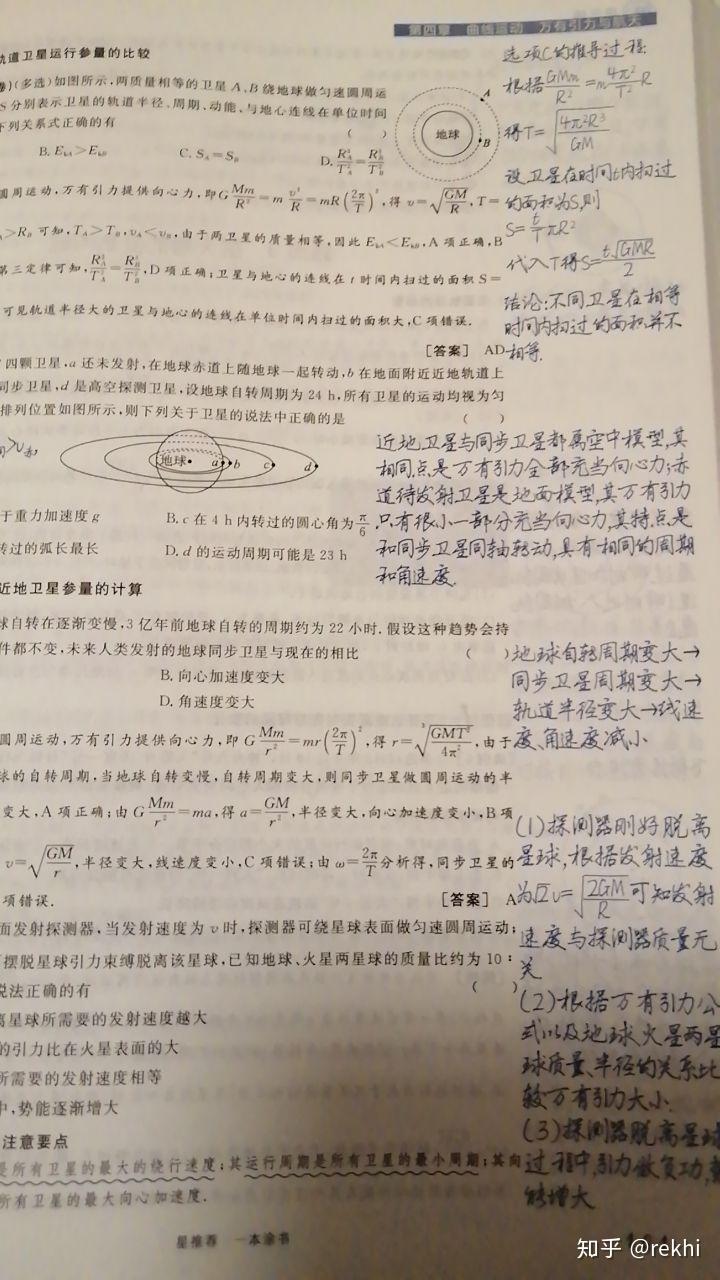 第四章 曲线运动 万有引力与航天
轨道卫星运行参量的比较
卷)(多选)如图所示,两质量相等的卫星A、B绕地球做匀速圆周运
S分别表示卫星的轨道半径、周期、动能、与地心连线在单位时间
下列关系式正确的有 ( )
B. E_kA>E_kB C. S_A=S_B D. R_A^3/T_A^2=R_B^3/T_B^2
地球 A B
圆周运动,万有引力提供向心力,即G Mm/R^2=m v^2/R=mR(2π/T)^2,得v=√(GM/R),T=
>R_B可知,T_A>T_B,v_A<v_B,由于两卫星的质量相等,因此E_kA<E_kB,A项正确,B
第三定律可知,R_A^3/T_A^2=R_B^3/T_B^2,D项正确;卫星与地心的连线在t时间内扫过的面积S=
可见轨道半径大的卫星与地心的连线在单位时间内扫过的面积大,C项错误.
[答案] AD
选项C的推导过程:
根据GMm/R^2=m 4π^2/T^2 R
得T=√(4π^2R^3/GM)
设卫星在时间t内扫过
的面积为S,则
S=t/T πR^2
代入T得S=t√GMR/2
结论:不同卫星在相等
时间内扫过的面积并不
相等.
四颗卫星,a还未发射,在地球赤道上随地球一起转动,b在地面附近近地轨道上
同步卫星,d是高空探测卫星,设地球自转周期为24 h,所有卫星的运动均视为匀
排列位置如图所示,则下列关于卫星的说法中正确的是 ( )
地球 a b c d
于重力加速度g B. c在4 h内转过的圆心角为π/6
转过的弧长最长 D. d的运动周期可能是23 h
近地卫星与同步卫星都属空中模型,其
相同点是万有引力全部充当向心力;赤
道待发射卫星是地面模型,其万有引力
只有很小一部分充当向心力,其特点是
和同步卫星同轴转动,具有相同的周期
和角速度.
近地卫星参量的计算
球自转在逐渐变慢,3亿年前地球自转的周期约为22小时.假设这种趋势会持
件都不变,未来人类发射的地球同步卫星与现在的相比 ( )
B. 向心加速度变大
D. 角速度变大
圆周运动,万有引力提供向心力,即G Mm/r^2=mr(2π/T)^2,得r=∛(GMT^2/4π^2),由于
球的自转周期,当地球自转变慢,自转周期变大,则同步卫星做圆周运动的半
变大,A项正确;由G Mm/r^2=ma,得a=GM/r^2,半径变大,向心加速度变小,B项
v=√(GM/r),半径变大,线速度变小,C项错误;由ω=2π/T分析得,同步卫星的
项错误. [答案] A
地球自转周期变大→
同步卫星周期变大→
轨道半径变大→线速
度、角速度减小
面发射探测器,当发射速度为v时,探测器可绕星球表面做匀速圆周运动;
摆脱星球引力束缚脱离该星球,已知地球、火星两星球的质量比约为10:
说法正确的有 ( )
离星球所需要的发射速度越大
的引力比在火星表面的大
所需要的发射速度相等
中,势能逐渐增大
(1)探测器刚好脱离
星球,根据发射速度
为√2v=√(2GM/R)可知发射
速度与探测器质量无
关
(2)根据万有引力公
式以及地球火星两星
球质量、半径的关系比
较万有引力大小.
(3)探测器脱离星球
过程中,引力做负功,
能增大
注意要点
是所有卫星的最大的绕行速度;其运行周期是所有卫星的最小周期;其向
所有卫星的最大向心加速度.
星推荐 一本涂书
知乎 @rekhi